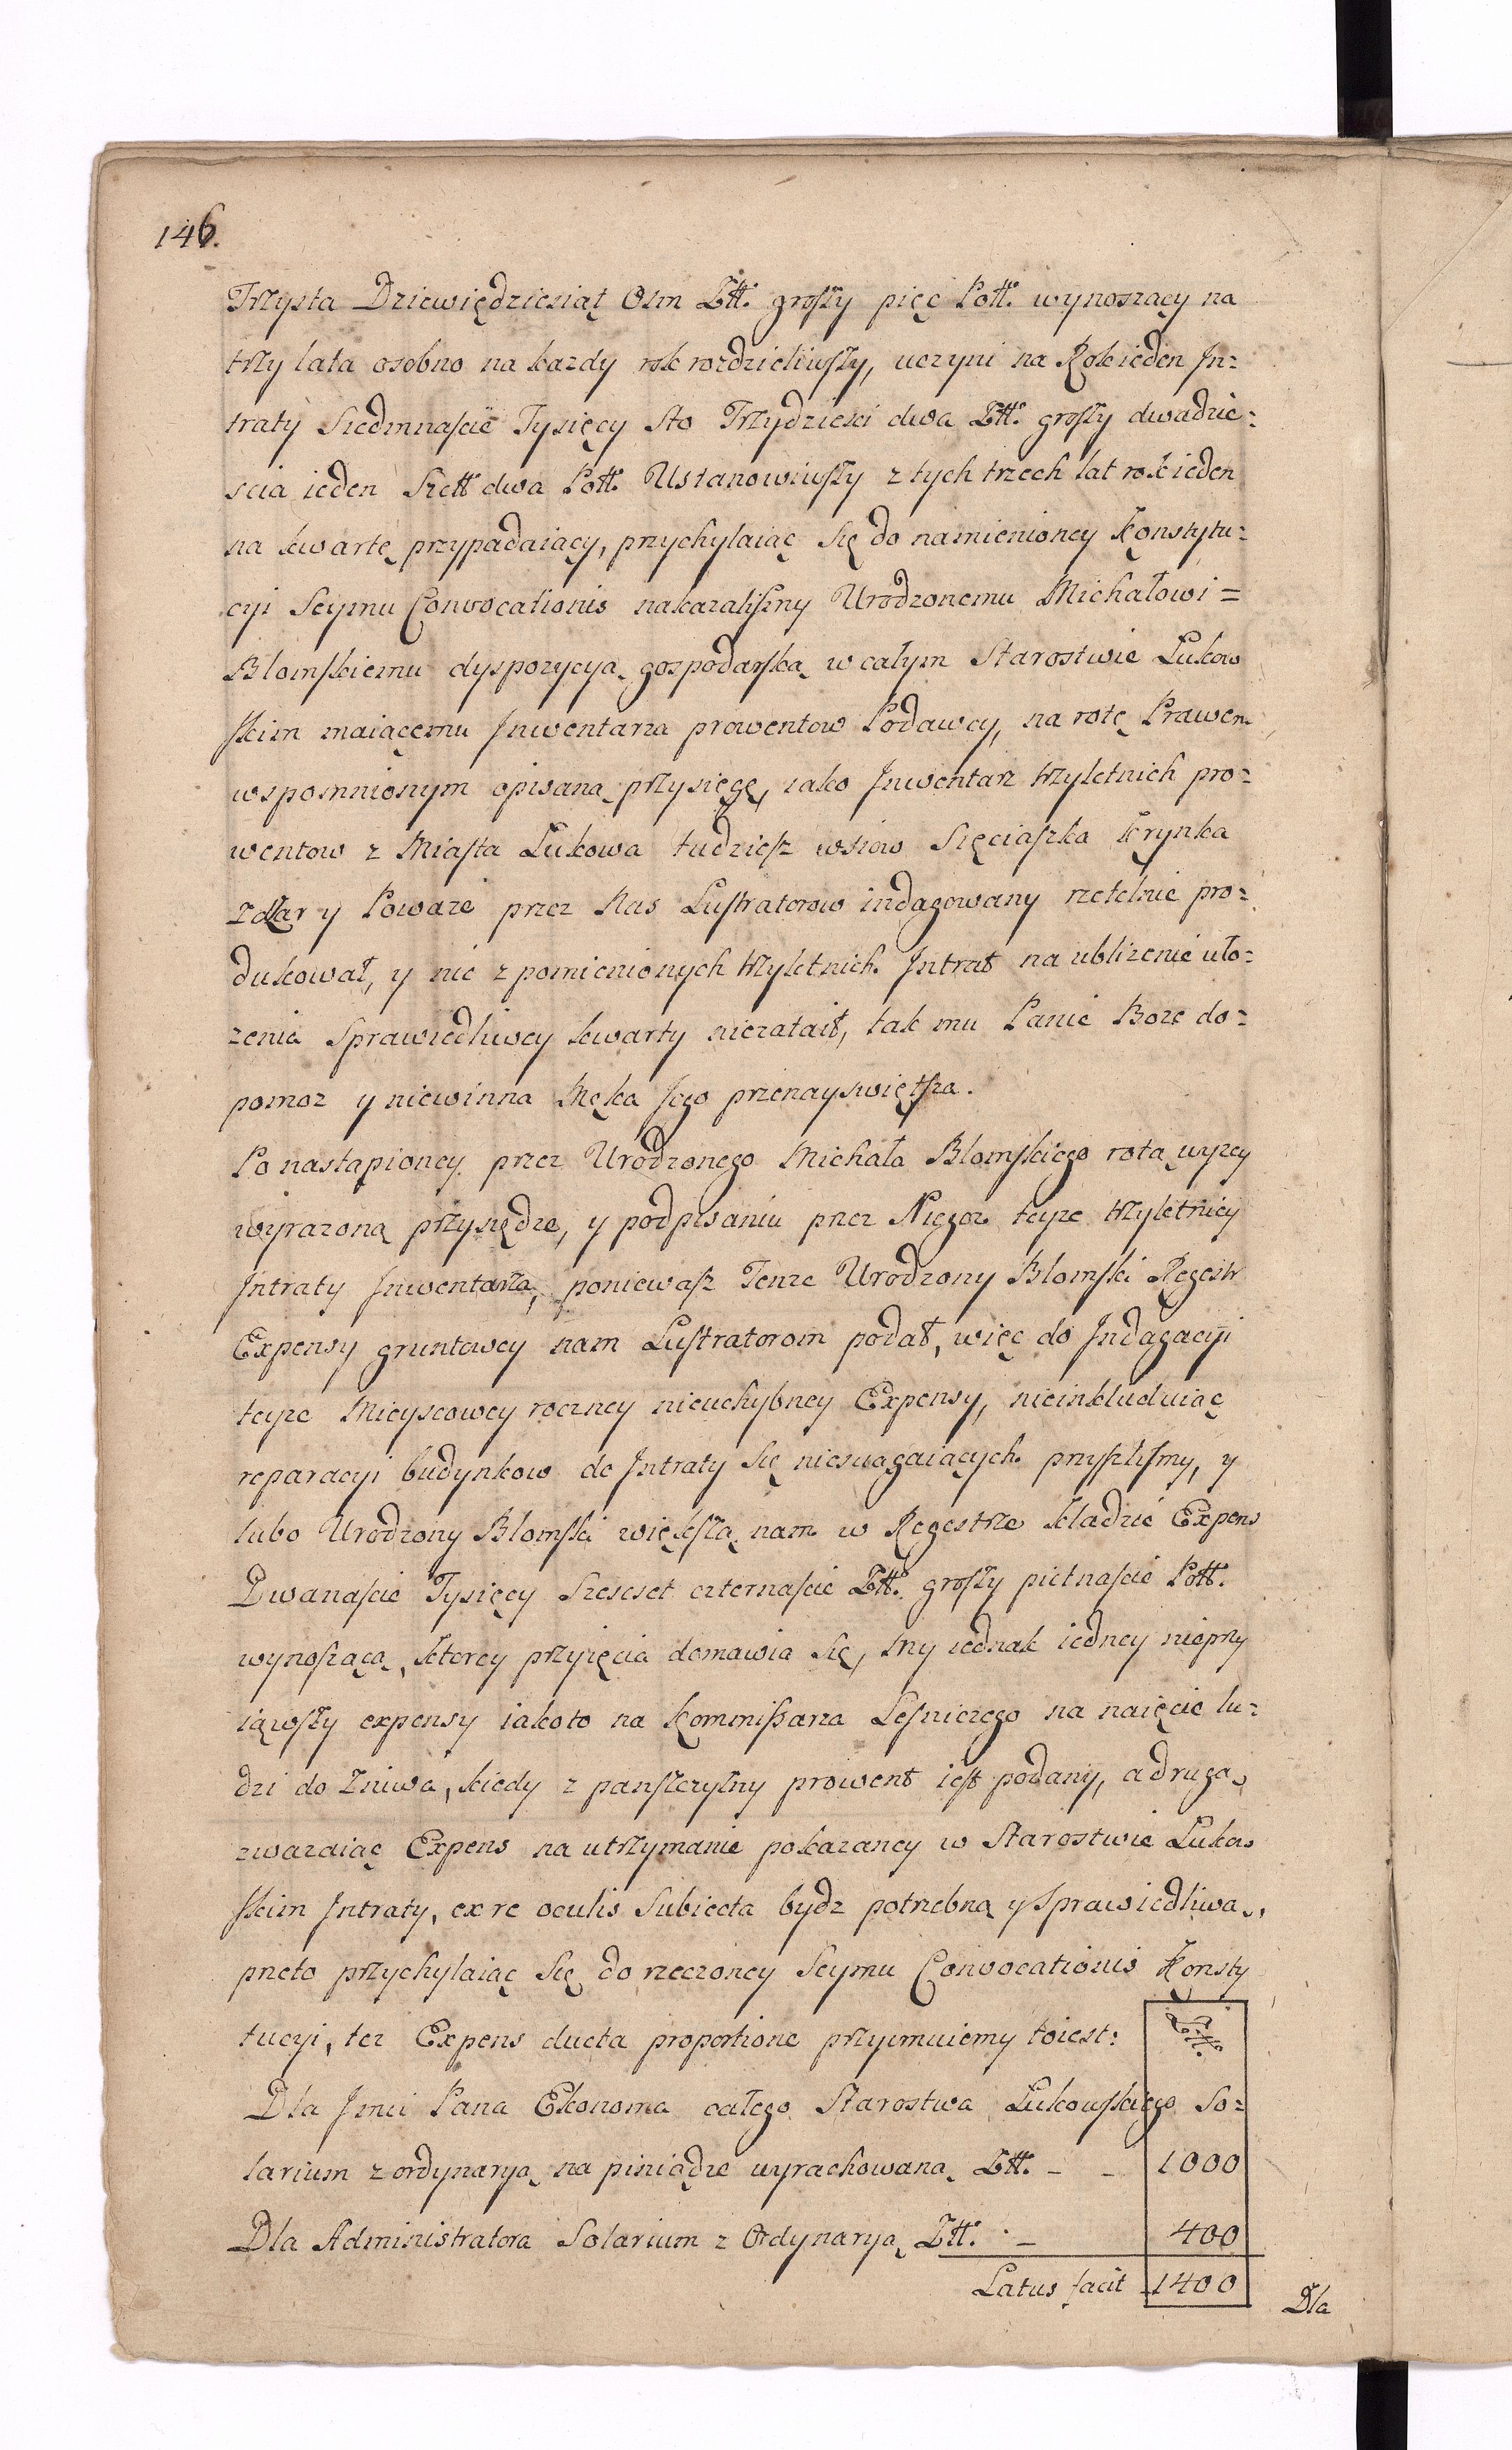 146.
Trzysta Dziewiędziesiąt Osm Złł. groszy pięc Poll. wynoszący na
trzy lata osobno na kazdy rok rozdzieliwszy, uczyni na Rok ieden In=
traty Siedmnascie Tysięcy Sto Trzydziesci dwa Złł. groszy dwadzie=
scia ieden Szell dwa Poll. Ustanowiwszy z tych trzech lat rok ieden
na kwartę przypadaiący, przychylaiąc się do namienioney Konstytu=
cyi Seymu Convocationis nakazalismy Urodzonemu Michałowi =
Blomskiemu dyspozycyą gospodarską w całym Starostwie Lukow
skim maiącemu Inwentarza prowentow Podawcy, na rotę Prawem
wspomnionym opisaną przysięgę, iako Inwentarz trzyletnich pro=
wentow z Miasta Lukowa tudziesz wsiow Sięciaszka Krynka
Zdżar y Poważe przez Nas Lustratorow indagowany rzetelnie pro=
dukował, y nic z pomienionych trzyletnich Intrat na ubliżenie uło=
zenia sprawiedliwey kwarty niezataił, tak mu Panie Boze do=
pomoz y niewinna Męka Jego przenayswiętsza.
Po nastąpioney przez Urodzonego Michała Blomskiego rotą wyzey
wyrazoną przysiędze, y podpisaniu przez Niegoz teyze trzyletniey
Intraty Inwentarza, poniewasz Tenze Urodzony Blomski Regestr
Expensy gruntowey nam Lustratorom podał, więc do Indagacyi
teyze Mieyscowey roczney nieuchybney Expensy, nieinkluduiąc
reparacyi budynkow do Intraty się niesciągaiących przyszlismy, y
lubo Urodzony Blomski większą nam w Regestrze kladzie Expens
Dwanascie Tysięcy Szescset czternascie Złł. groszy pietnascie Poll.
wynoszącą, ktorey przyięcia domawia się, my iednak iedney nieprzy
iąwszy expensy iakoto na Kommissarza Lesniczego na naięcie lu=
dzi do Zniwa, kiedy z panszczyzny prowent iest podany, a drugą
zwazaiąc Expens na utrzymanie pokazaney w Starostwie Lukow
skim Intraty, ex re oculis subiecta bydz potrzebną y sprawiedliwą,
przeto przychylaiąc się do rzeczoney Seymu Convocationis Konsty
tucyi, tez Expens ducta proportione przyimuiemy toiest: Złł.
Dla Jmci Pana Ekonoma całego Starostwa Lukowskiego So=
larium z ordynaryą na piniądze wyrachowaną Złł. - - 1000
Dla Administratora Solarium z Ordynaryą Złł. - 400
Latus facit 1400
Dla